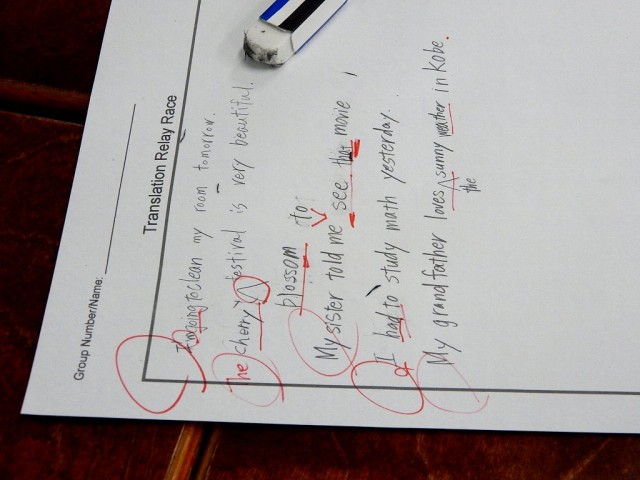 Group Number/Name:
Translation Relay Race
I'm going to clean my room tomorrow.
The cherry festival is very beautiful.
blossom to
My sister told me see that movie
I had to study math yesterday.
My grandfather loves sunny weather in Kobe.
the